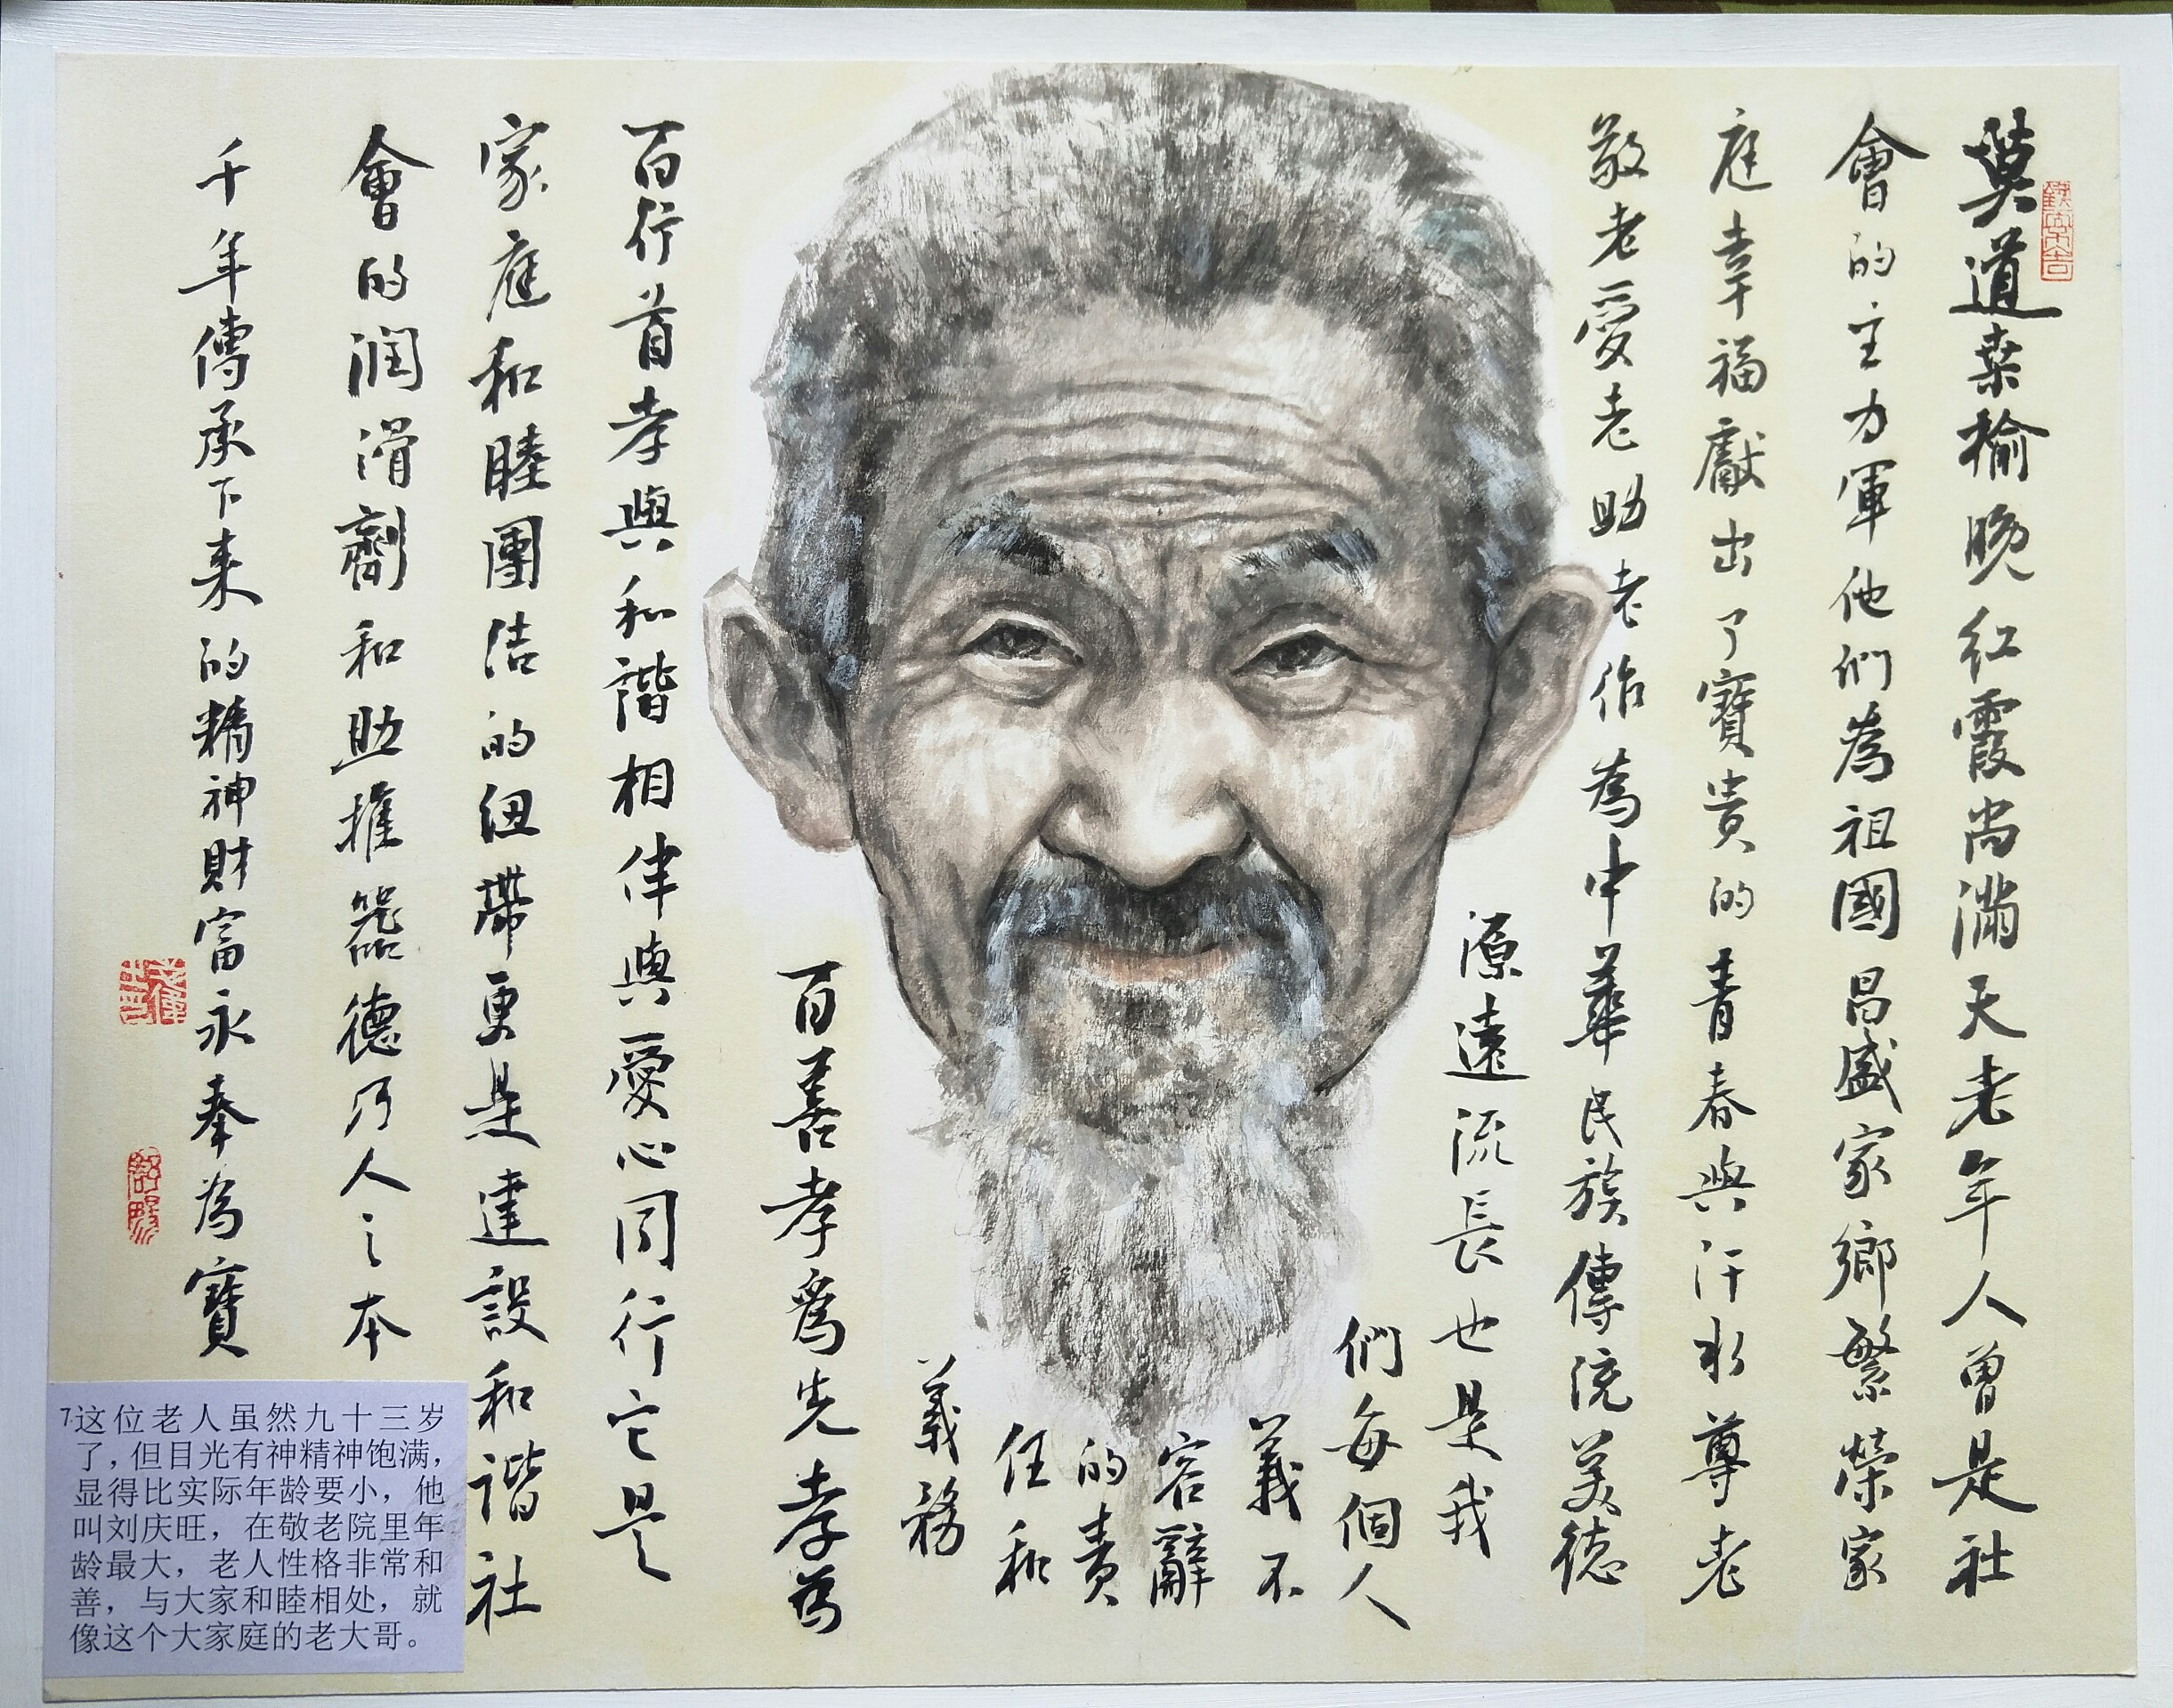 莫道桑榆晚红霞尚满天老年人曾是社
會的主力軍他們為祖國昌盛家鄉繁榮家
庭幸福獻出了寶貴的青春與汗水尊老
敬老愛老助老作為中華民族傳统美德
源遠流長也是我
們每個人
義不
容辭
的責
任和
義務
百善孝為先孝為
百行首孝與和諧相伴與愛心同行它是
家庭和睦團结的纽帶更是建設和諧社
會的润滑劑和助推器德乃人之本
千年傳承下来的精神財富永奉為寶
7.这位老人虽然九十三岁
了，但目光有神精神饱满，
显得比实际年龄要小，他
叫刘庆旺，在敬老院里年
龄最大，老人性格非常和
善，与大家和睦相处，就
像这个大家庭的老大哥。